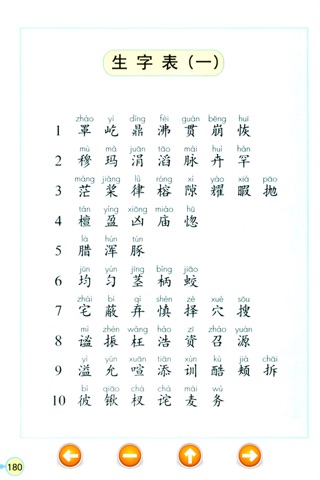 生字表(一)
zhào yí dǐng fèi guàn bēng huī
1 罩 屹 鼎 沸 贯 崩 恢
mù mǎ juān tāo mài huì hǎn
2 穆 玛 涓 滔 脉 卉 罕
máng jiǎng lǜ róng xì yào xiá pāo
3 茫 桨 律 榕 隙 耀 暇 抛
tán yíng xiōng miào hū
4 檀 盈 凶 庙 惚
là hún tún
5 腊 浑 豚
jūn yún jīng bǐng jiāo
6 均 匀 茎 柄 蛟
zhái bì qì shèn zé xué sōu
7 宅 蔽 弃 慎 择 穴 搜
mì zhèn wǎng hào zī zhào yuán
8 谧 振 枉 浩 资 召 源
yì yǔn xuān tiān xùn kù jiá chāi
9 溢 允 喧 添 训 酷 颊 拆
bǐ qiāo chā chà mài wù
10 彼 锹 杈 诧 麦 务
180